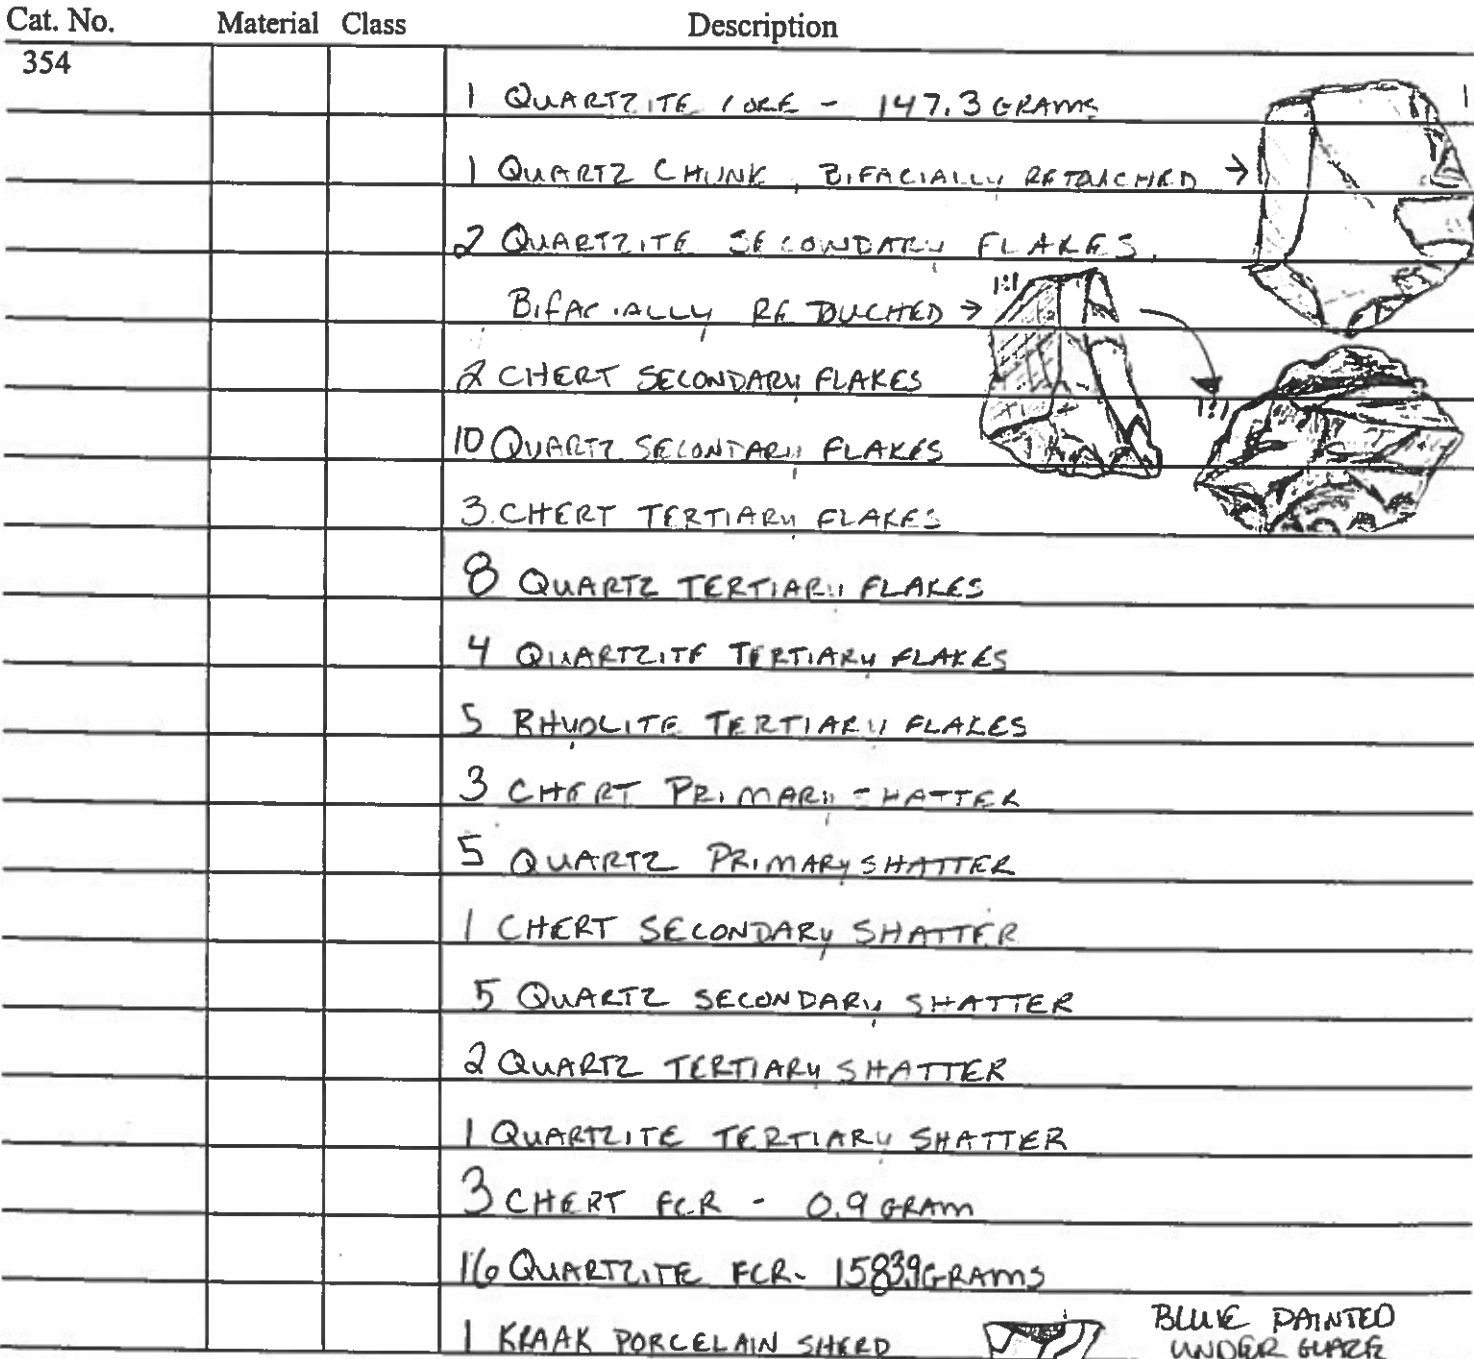 Cat. No. Material Class Description
354
1 QUARTZITE CORE - 147.3 GRAMS
1
1 QUARTZ CHUNK, BIFACIALLY RETOUCHED →
2 QUARTZITE SECONDARY FLAKES,
BIFACIALLY RETOUCHED → 1:1
2 CHERT SECONDARY FLAKES
1:1
10 QUARTZ SECONDARY FLAKES
3 CHERT TERTIARY FLAKES
8 QUARTZ TERTIARY FLAKES
4 QUARTZITE TERTIARY FLAKES
5 RHYOLITE TERTIARY FLAKES
3 CHERT PRIMARY SHATTER
5 QUARTZ PRIMARY SHATTER
1 CHERT SECONDARY SHATTER
5 QUARTZ SECONDARY SHATTER
2 QUARTZ TERTIARY SHATTER
1 QUARTZITE TERTIARY SHATTER
3 CHERT FCR - 0.9 GRAM
16 QUARTZITE FCR - 1583.9 GRAMS
1 KRAAK PORCELAIN SHERD BLUE PAINTED
UNDER GLAZE